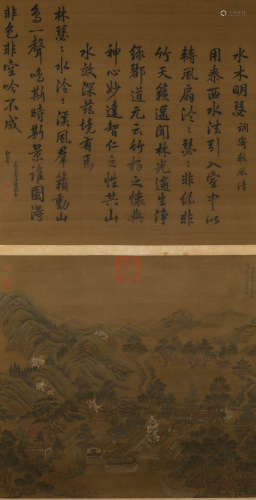 水木明瑟 調寄秋風清
用泰西水法引入室中以
轉風扇泠〻瑟〻非絲非
竹天籟遙聞林光逾生淨
綠酈道元云竹柏之懷與
神心妙達智仁之性共山
水效深茲境有焉
林瑟〻水泠〻溪風羣籟動山
鳥一聲鳴斯時斯景誰圖得
非色非空吟不成